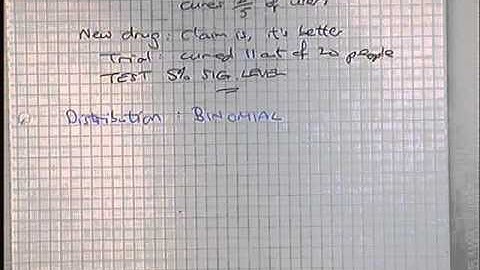 cures 2/5 of users
New drug : Claim is, it's better
Trial : cured 11 out of 20 people
TEST 5% SIG. LEVEL
Distribution : BINOMIAL